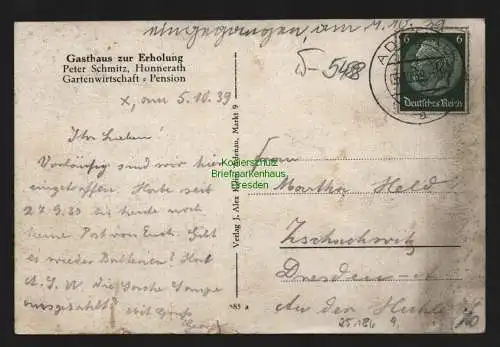 eingegangen, am 9.10.39
Gasthaus zur Erholung
Peter Schmitz, Honnerath
Gartenwirtschaft - Pension
x, am 5.10.39
Ihr Lieben!
Vorläufig sind wir hier
eingetroffen. Habe seit
27.9.39 bis heute noch
keine Post von Euch. Gibt
es wieder Batterien? Hat
die
ausgezahlt? Mit Gruß
Georg
Verlag J. Alex Adenau, Markt 9
Kopierschutz
Briefmarkenhaus
Dresden
6 6
Deutsches Reich
AD
Martha Held
Zschachwitz
Dresden-A
An der
25186 9